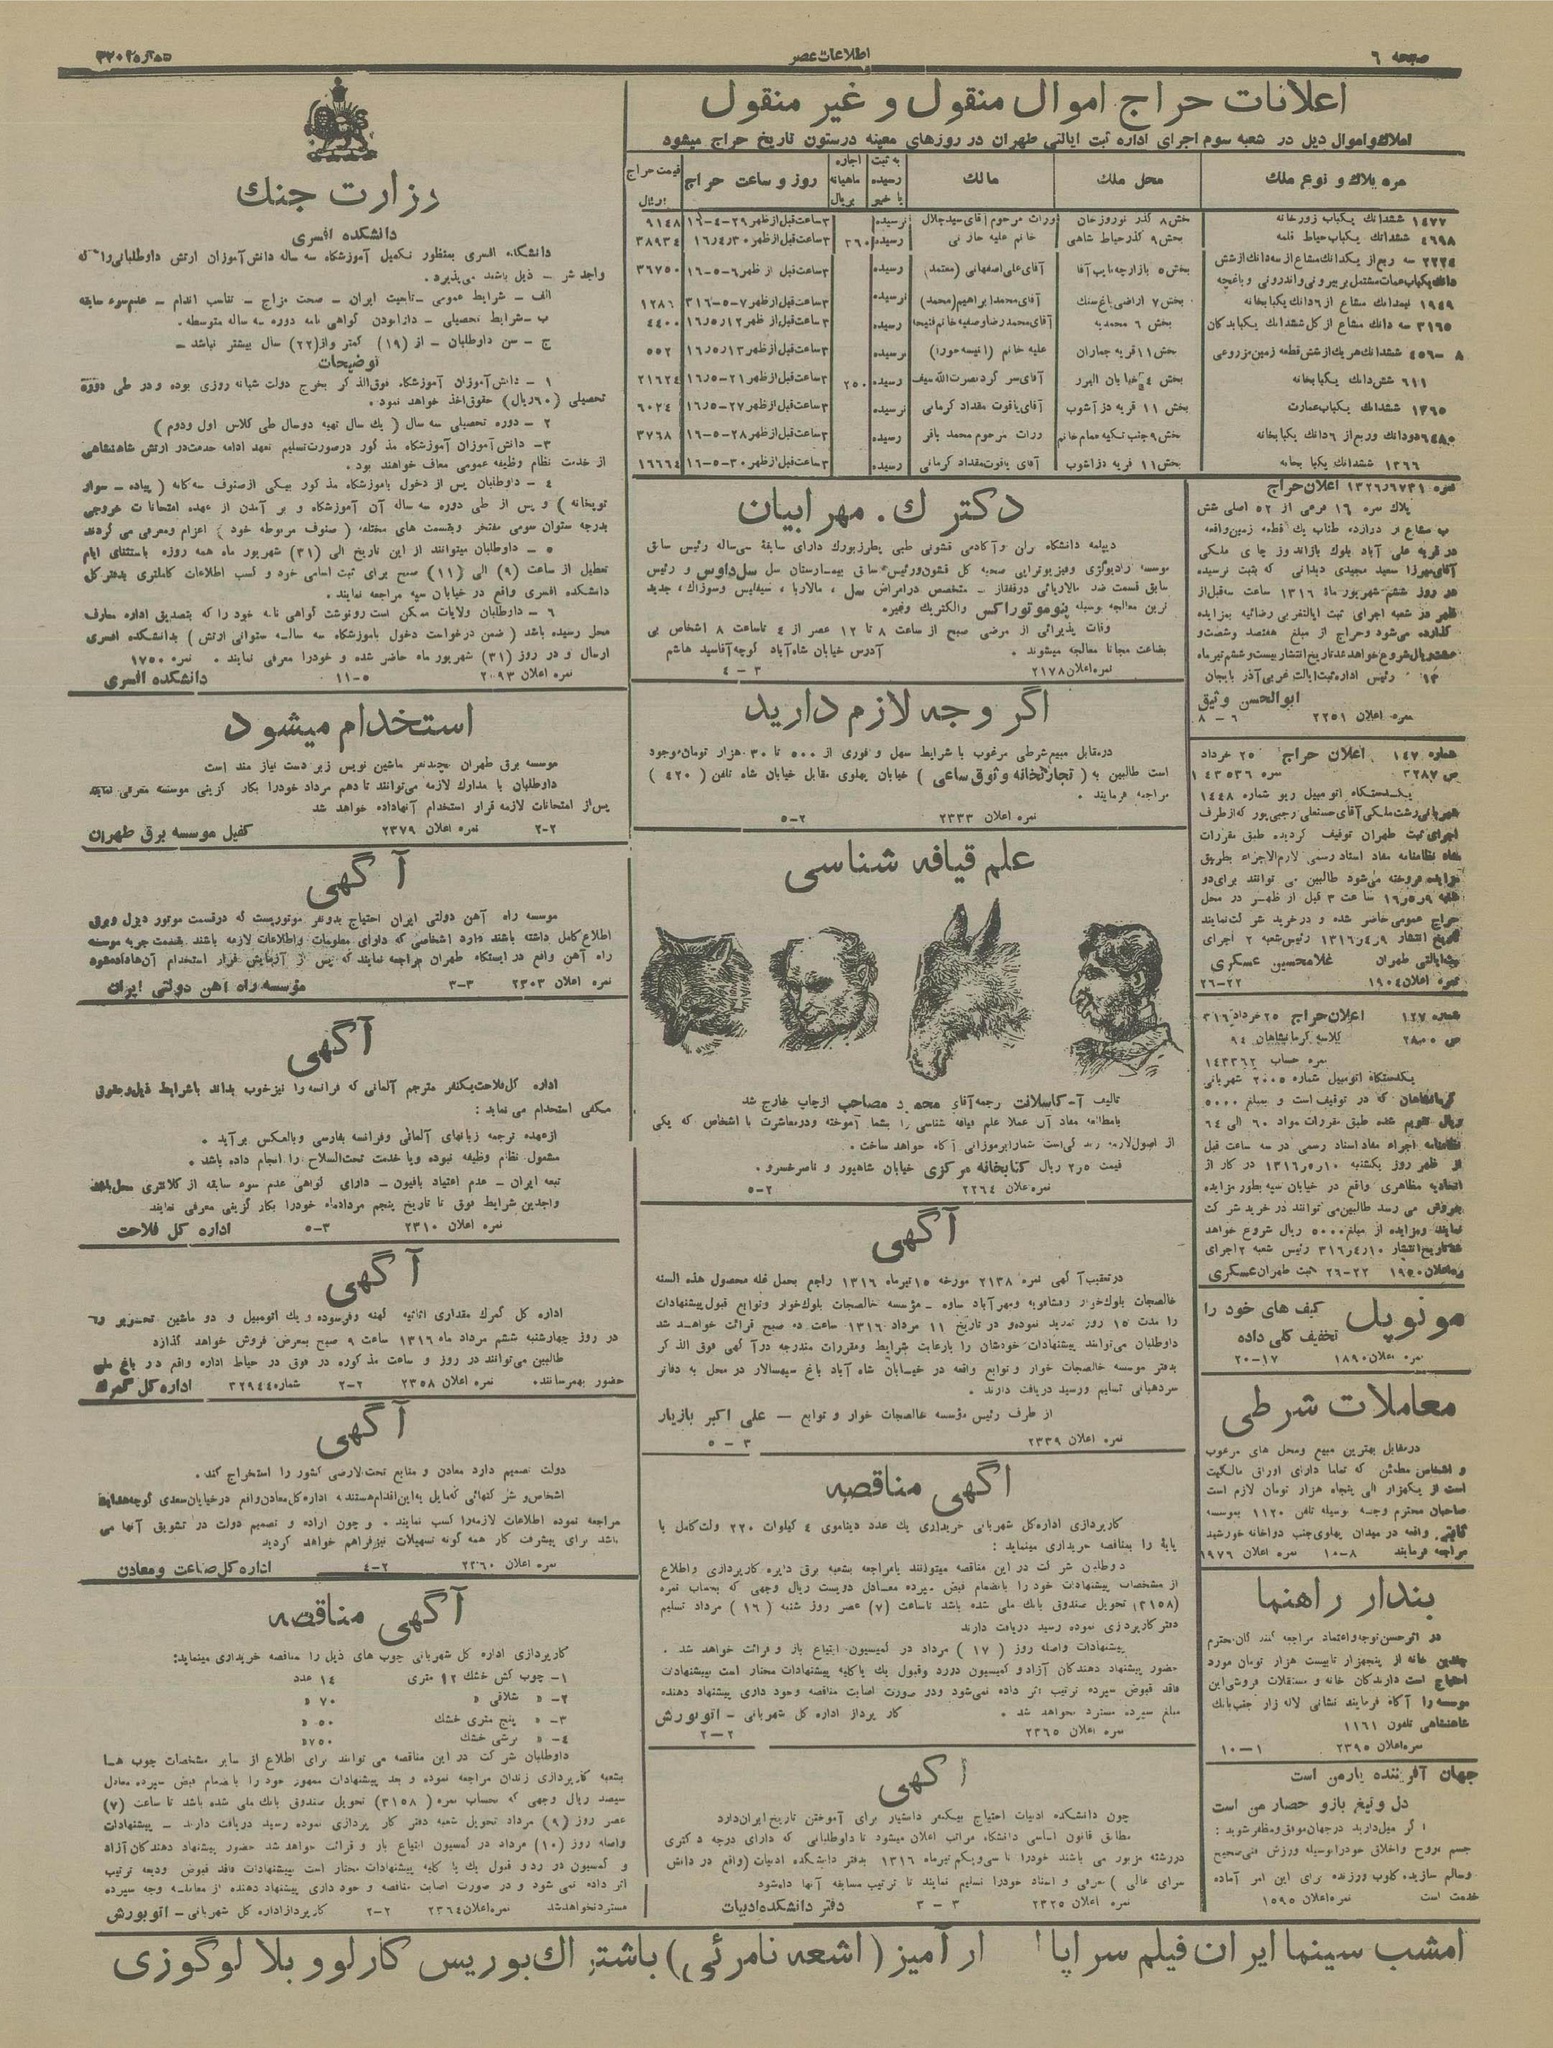 صفحه ٦
اطلاعات عصر
اعلانات حراج اموال منقول و غیر منقول
املاك واموال ذیل در شعبه سوم اجرای اداره ثبت ایالتی طهران در روزهای معینه درستون تاریخ حراج میشود
نمره پلاك و نوع ملك
محل ملك
مالك
به ثبت رسیده یا خیر
اجاره ماهیانه بریال
روز و ساعت حراج
قیمت حراج بریال
١٤٧٧ ششدانك یكباب زورخانه بخش ٨ گذر نوروزخان وراث مرحوم آقای سیدجلال نرسیده ٣ساعت قبل از ظهر ٢٩-٤-١٦ ٩١٤٨
٤٦٩٨ ششدانك یكباب حیاط قلمه بخش ٩ گذر حیاط شاهی رسیده ٣٦٠ ٣ساعت قبل از ظهر ٣٠ر٤ر١٦ ٣٨٩٣٤
٢٢٢٤ سه ربع از یكدانك مشاع از سه دانك از شش بخش ٥ بازارچه نایب آقا آقای علی اصفهانی (معتمد) رسیده ٣ساعت قبل از ظهر ٦-٥-١٦ ٣٦٧٥٠
دانك یكباب عمارت مشتمل بر بیرونی واندرونی و باغچه
١٩٤٩ نیمدانك مشاع از ٦دانك یكبابخانه بخش ٧ اراضی باغ سنك آقای محمد ابراهیم (محمد) نرسیده ٣ساعت قبل از ظهر ٧-٥-٣١٦ ١٢٨٦
٣١٦٥ سه دانك مشاع از كل ششدانك یكبابدكان بخش ٦ محمدیه آقای محمدرضا وصفیه خانم فتیحه رسیده ٣ساعت قبل از ظهر ١٢ر٥ر١٦ ٤٤٠٠
٨-٤٥٦ ششدانك هریك از شش قطعه زمین مزروعی بخش ١١ قریه جماران علیه خانم (انیسه حورا) نرسیده ٣ساعت قبل از ظهر ١٣ر٥ر١٦ ٥٥٢
٦١١ شش دانك یكبابخانه بخش ٤ خیابان البرز آقای سرگرد نصرت الله سیف رسیده ٢٥٠ ٣ساعت قبل از ظهر ٢١-٥ر١٦ ٢١٦٢٤
١٣٦٥ ششدانك یكباب عمارت بخش ١١ قریه دزآشوب آقای یاقوت مقداد كرمانی نرسیده ٣ساعت قبل از ظهر ٢٧-٥ر١٦ ٦٠٢٤
٦٤٨٠ دودانك وربع از ٦دانك یكبابخانه بخش ٩ جنب تكیه حمام خانم وراث مرحوم محمد باقر رسیده ٣ساعت قبل از ظهر ٢٨-٥-١٦ ٣٧٦٨
١٣٦٦ ششدانك یكبابخانه بخش ١١ قریه دزاشوب آقای یاقوت مقداد كرمانی رسیده ٣ساعت قبل از ظهر ٣٠-٥-١٦ ١٦٦٦٤
اعلان حراج
پلاك نمره ١٦ فرعی از ٥٢ اصلی شش
در قریه علی آباد بلوك باراندوز چای ملكی
آقای میرزا سعید مجیدی دیدانی كه بثبت نرسیده
در روز ششم شهریور ماه ١٣١٦ ساعت سه قبل از
ظهر در شعبه اجرای ثبت ایالتغربی رضائیه بمزایده
گذارده می‌شود وحراج از مبلغ هفتصد وشصت و
رئیس اداره ثبت ایالت غربی آذربایجان
ابوالحسن وثیق
نمره اعلان ٢٢٥١ ٦-٨
شماره ١٤٧ اعلان حراج ٢٥ خرداد
ص ٣٢٨٧ نمره ١٤٣٥٣٦
یكدستگاه اتومبیل ریو شماره ١٤٤٨
شهربانی رشت ملكی آقای حسنعلی رجبی پور كه از طرف
اجرای ثبت طهران توقیف گردیده طبق مقررات
نظامنامه مفاد اسناد رسمی لازم الاجراء بطریق
مزایده فروخته می‌شود طالبین می توانند برای دو
حراج عمومی حاضر شده و درخرید شركت نمایند
تاریخ انتشار ٩ر٤ر١٣١٦ رئیس شعبه ٢ اجرای
ثبت ایالتی طهران غلامحسین عسكری
نمره اعلان ١٩٠٤ ٢٢-٢٦
شماره ١٢٧ اعلان حراج ٢٥ خرداد ٣١٦
ص ٢٨٠٥ كلاسه كرمانشاهان ٩٤
نمره حساب ١٤٣٣٦٢
یكدستگاه اتومبیل شماره ٢٠٠٥ شهربانی
كرمانشاهان كه در توقیف است و بمبلغ ٥٠٠٠
ریال تقویم شده طبق مقررات مواد ٦٠ الی ٦٤
نظامنامه اجراء مفاد اسناد رسمی در سه ساعت قبل
از ظهر روز یكشنبه ١٠ر٥ر١٣١٦ در گاراژ
اتحادیه مظاهری واقع در خیابان سپه بطور مزایده
بفروش می رسد طالبین می توانند در خرید شركت
نمایند ومزایده از مبلغ ٥٠٠٠ ریال شروع خواهد
شد تاریخ انتشار ١٠ر٤ر٣١٦ رئیس شعبه ٢اجرای
نمره اعلان ١٩٥٠ ٢٢-٢٦ ثبت طهران عسگری
مونوپل كیف های خود را
تخفیف كلی داده
نمره اعلان ١٨٩٠ ١٧-٢٠
معاملات شرطی
درمقابل بهترین مبیع ومحل های مرغوب
و اشخاص مطمئن كه تماما دارای اوراق مالكیت
است از یكهزار الی پنجاه هزار تومان لازم است
صاحبان محترم وجه بوسیله تلفن ١١٢٠ بموسسه
واقعه در میدان پهلوی جنب دواخانه خورشید
مراجعه فرمایند ٨-١٠ نمره اعلان ١٩٧٦
بندار راهنما
در اثر حسن توجه واعتماد مراجعه كنندگان محترم
چندین خانه از پنجهزار تا بیست هزار تومان مورد
احتیاج است دارندگان خانه و مستقلات فروشی این
موسسه را آگاه فرمایند نشانی لاله زار جنب بانك
شاهنشاهی تلفون ١١٦١
نمره اعلان ٢٣٩٥ ١-١٠
جهان آفریننده یار من است
دل و تیغ بازو حصار من است
اگر میل دارید در جهان موفق و مظفر شوید:
جسم بروح و اخلاق خود را بوسیله ورزش فنی صحیح
وسالم سازید. كلوب ورزنده برای این امر آماده
خدمت است نمره اعلان ١٥٩٥
دكتر ك. مهرابیان
دیپلمه دانشگاه بران و آكادمی قشونی طبی پطرزبورك دارای سابقهٔ سی‌ساله رئیس سابق
موسسه رادیولگزی و فیزیوتراپی صحیه كل قشون و رئیس سابق بیمارستان سل سل داوس و رئیس
سابق قسمت ضد مالاریائی درقفقاز ــ متخصص درامراض سل، مالاریا، سیفلیس وسوزاك، جدید
ترین معالجه بوسیله پنوموتوراكس والكتریك وغیره.
وقات پذیرائی از مرضی صبح از ساعت ٨ تا ١٢ عصر از ٤ تا ساعت ٨ اشخاص بی
بضاعت مجانا معالجه میشوند. آدرس خیابان شاه‌آباد كوچه آقاسید هاشم
نمره اعلان ٢١٧٨ ٣-٤
اگر وجه لازم دارید
درمقابل مبیع شرطی مرغوب با شرایط سهل و فوری از ٥٠٠ تا ٣٠ هزار تومان موجود
است طالبین به (تجارتخانه وثوق ساعی) خیابان پهلوی مقابل خیابان شاه تلفن (٤٢٠)
مراجعه فرمایند.
نمره اعلان ٢٣٣٣ ٢-٥
علم قیافه شناسی
تالیف آ-كاسلانت ترجمه آقای محمود مصاحب از چاپ خارج شد
بامطالعه مفاد آن عملا علم قیافه شناسی را بشما آموخته ودرمعاشرت با اشخاص كه یكی
از اصول لازمه زندگی است شما را بموزانی آگاه خواهد ساخت.
قیمت ٢ر٥ ریال كتابخانه مركزی خیابان شاهپور و ناصرخسرو.
نمره اعلان ٢٢٦٤ ٢-٥
آگهی
درتعقیب آگهی نمره ٢١٣٨ مورخه ١٥ تیرماه ١٣١٦ راجع بحمل غله محصول هذه السنه
خالصجات بلوك خوار ومهرآباد ساوه - مؤسسه خالصجات بلوك خوار وتوابع قبول پیشنهادات
را مدت ١٥ روز تمدید نموده و در تاریخ ١١ مرداد ١٣١٦ ساعت ده صبح قرائت خواهد شد
داوطلبان می‌توانند پیشنهادات خودشان را بارعایت شرایط ومقررات مندرجه درآگهی فوق الذكر
بدفتر موسسه خالصجات خوار و توابع واقعه در خیابان شاه آباد باغ سپهسالار در محل به دفاتر
سردهبانی تسلیم ورسید دریافت دارند.
از طرف رئیس مؤسسه خالصجات خوار و توابع — علی اكبر بازیار
نمره اعلان ٢٣٣٩ ٣-٥
آگهی مناقصه
كارپردازی اداره كل شهربانی خریداری یك عدد دیناموی ٤ كیلوات ٢٢٠ ولت كامل با
پایهٔ را بمناقصه خریداری مینماید:
داوطلبان شركت در این مناقصه میتوانند بامراجعه بشعبه برق دایره كارپردازی واطلاع
از مشخصات پیشنهادات خود را بانضمام قبض سپرده معادل دویست ریال وجهی كه بحساب نمره
(٣١٥٨) تحویل صندوق بانك ملی شده باشد تاساعت (٧) عصر روز شنبه (١٦) مرداد تسلیم
دفتر كارپردازی نموده رسید دریافت دارند
پیشنهادات واصله روز (١٧) مرداد در كمیسیون ابتیاع باز و قرائت خواهد شد.
حضور پیشنهاد دهندگان آزاد و كمیسیون در رد وقبول یك یا كلیه پیشنهادات مختار است پیشنهادات
فاقد قبوض سپرده ترتیب اثر داده نمی‌شود ودر صورت اصابت مناقصه وخود داری پیشنهاد دهنده
مبلغ سپرده مسترد نخواهد شد. كارپرداز اداره كل شهربانی - اتوبورش
نمره اعلان ٢٣٦٥ ٢-٢
آگهی
چون دانشكده ادبیات احتیاج بیكنفر دانشیار برای آموختن تاریخ ایران دارد
مطابق قانون اساسی دانشگاه مراتب اعلان میشود تا داوطلبانی كه دارای درجه دكتری
دررشته مزبور می باشند خودرا تا سی ویكم تیرماه ١٣١٦ بدفتر دانشكده ادبیات (واقع در دانش
سرای عالی) معرفی و اسناد خودرا تسلیم نمایند تا ترتیب مسابقه آنها داده شود
نمره اعلان ٢٣٢٥ ٣-٣ دفتر دانشكده ادبیات
وزارت جنك
دانشكده افسری
دانشكده افسری بمنظور تكمیل آموزشگاه سه ساله دانش آموزان ارتش داوطلبانی را كه
واجد شر - ذیل باشند می‌پذیرد.
الف - شرایط عمومی - تابعیت ایران - صحت مزاج - تناسب اندام - عدم سوء سابقه
ب - شرایط تحصیلی - دارا بودن گواهی نامه دوره سه ساله متوسطه.
ج - سن داوطلبان - از (١٩) كمتر واز (٢٢) سال بیشتر نباشد -
توضیحات
١ - دانش آموزان آموزشگاه فوق الذكر بخرج دولت شبانه روزی بوده و در طی دوره
تحصیلی (٦٠ریال) حقوق اخذ خواهد نمود.
٢ - دوره تحصیلی سه سال (یك سال تهیه دوسال طی كلاس اول ودوم)
٣- دانش آموزان آموزشگاه مذكور درصورت تسلیم تعهد ادامه خدمت در ارتش شاهنشاهی
از خدمت نظام وظیفه عمومی معاف خواهند بود.
٤ - داوطلبان پس از دخول بآموزشگاه مذكور بیكی از صنوف سه گانه (پیاده - سوار
توپخانه) و پس از طی دوره سه ساله آن آموزشگاه و بر آمدن از عهده امتحانات خروجی
بدرجه ستوان سومی مفتخر وبقسمت های مختلفه (صنوف مربوطه خود) اعزام ومعرفی می گردند
٥ - داوطلبان میتوانند از این تاریخ الی (٣١) شهریور ماه همه روزه باستثنای ایام
تعطیل از ساعت (٩) الی (١١) صبح برای ثبت اسامی خود و كسب اطلاعات كاملتری بدفتر كل
دانشكده افسری واقع در خیابان سپه مراجعه نمایند.
٦ - داوطلبان ولایات ممكن است رونوشت گواهی نامه خود را كه بتصدیق اداره معارف
محل رسیده باشد (ضمن درخواست دخول باموزشگاه سه ساله ستوانی ارتش) بدانشكده افسری
ارسال و در روز (٣١) شهریور ماه حاضر شده و خودرا معرفی نمایند. نمره ١٧٥٠
نمره اعلان ٢٠٩٣ ٥-١١ دانشكده افسری
استخدام میشود
موسسه برق طهران بچندنفر ماشین نویس زبر دست نیازمند است
داوطلبان با مدارك لازمه می‌توانند تا دهم مرداد خودرا بكار گزینی موسسه معرفی نمایند
پس از امتحانات لازمه قرار استخدام آنها داده خواهد شد
٢-٢ نمره اعلان ٢٣٧٩ كفیل موسسه برق طهران
آگهی
موسسه راه آهن دولتی ایران احتیاج بدونفر موتوریست كه درقسمت موتور دیزل وبرق
اطلاع كامل داشته باشند دارد اشخاصی كه دارای معلومات واطلاعات لازمه باشند بقسمت جریه موسسه
راه آهن واقع در ایستگاه طهران مراجعه نمایند كه پس از آزمایش قرار استخدام آن‌ها داده شود
نمره اعلان ٢٣٠٣ ٣-٣ مؤسسه راه آهن دولتی ایران
آگهی
اداره كل فلاحت یكنفر مترجم آلمانی كه فرانسه را نیز خوب بداند باشرایط ذیل وحقوق
مكفی استخدام می نماید:
ازعهده ترجمه زبانهای آلمانی وفرانسه بفارسی وبالعكس برآید.
مشمول نظام وظیفه نبوده ویا خدمت تحت السلاح را انجام داده باشد.
تبعه ایران - عدم اعتیاد بافیون - دارای گواهی عدم سوء سابقه از كلانتری محل باشد
واجدین شرایط فوق تا تاریخ پنجم مردادماه خودرا بكار گزینی معرفی نمایند
نمره اعلان ٢٣١٠ ٣-٥ اداره كل فلاحت
آگهی
اداره كل گمرك مقداری اثاثیه كهنه وفرسوده ویك اتومبیل و دو ماشین تحریر و٦
در روز چهارشنبه ششم مرداد ماه ١٣١٦ ساعت ٩ صبح بمعرض فروش خواهد گذارد
طالبین می‌توانند در روز و ساعت مذكوره در فوق در حیاط اداره واقع در باغ ملی
حضور بهمرسانند. نمره اعلان ٢٣٥٨ ٢-٢ شماره ٣٢٩٤٤ اداره كل گمرك
آگهی
دولت تصمیم دارد معادن و منابع تحت الارضی كشور را استخراج كند.
اشخاص و شركتهائی كه مایل به این اقدام هستند به اداره كل معادن واقع در خیابان سعدی كوچه هدایت
مراجعه نموده اطلاعات لازمه را كسب نمایند. و چون اراده و تصمیم دولت در تشویق آنها می
باشد برای پیشرفت كار همه گونه تسهیلات نیز فراهم خواهد گردید
نمره اعلان ٢٣٦٠ ٢-٤ اداره كل صناعت ومعادن
آگهی مناقصه
كارپردازی اداره كل شهربانی چوب های ذیل را مناقصه خریداری مینماید:
١- چوب كش خشك ١٢ متری ١٤ عدد
٢- » شلاقی » ٧٠ »
٣- » پنج متری خشك ٥٠ »
٤- » برشی خشك ٧٥٠ »
داوطلبان شركت در این مناقصه می توانند برای اطلاع از سایر مشخصات چوب ها
بشعبه كارپردازی زندان مراجعه نموده و بعد پیشنهادات ممهور خود را با ضمام قبض سپرده معادل
سیصد ریال وجهی كه بحساب نمره (٣١٥٨) تحویل صندوق بانك ملی شده باشد تا ساعت (٧)
عصر روز (٩) مرداد تحویل شعبه دفتر كارپردازی نموده رسید دریافت دارند - پیشنهادات
واصله روز (١٠) مرداد در كمسیون ابتیاع باز و قرائت خواهد شد حضور پیشنهاد دهندگان آزاد
و كمسیون در رد و قبول یك یا كلیه پیشنهادات مختار است پیشنهادات فاقد قبوض ودیعه ترتیب
اثر داده نمی شود و در صورت اصابت مناقصه و خود داری پیشنهاد دهنده از معامله وجه سپرده
مسترد نخواهد شد نمره اعلان ٢٣٦٤ ٢-٢ كارپرداز اداره كل شهربانی - اتوبورش
امشب سینما ایران فیلم سراپا اسرارآمیز (اشعه نامرئی) باشتراك بوریس كارلو و بلا لوگوزی